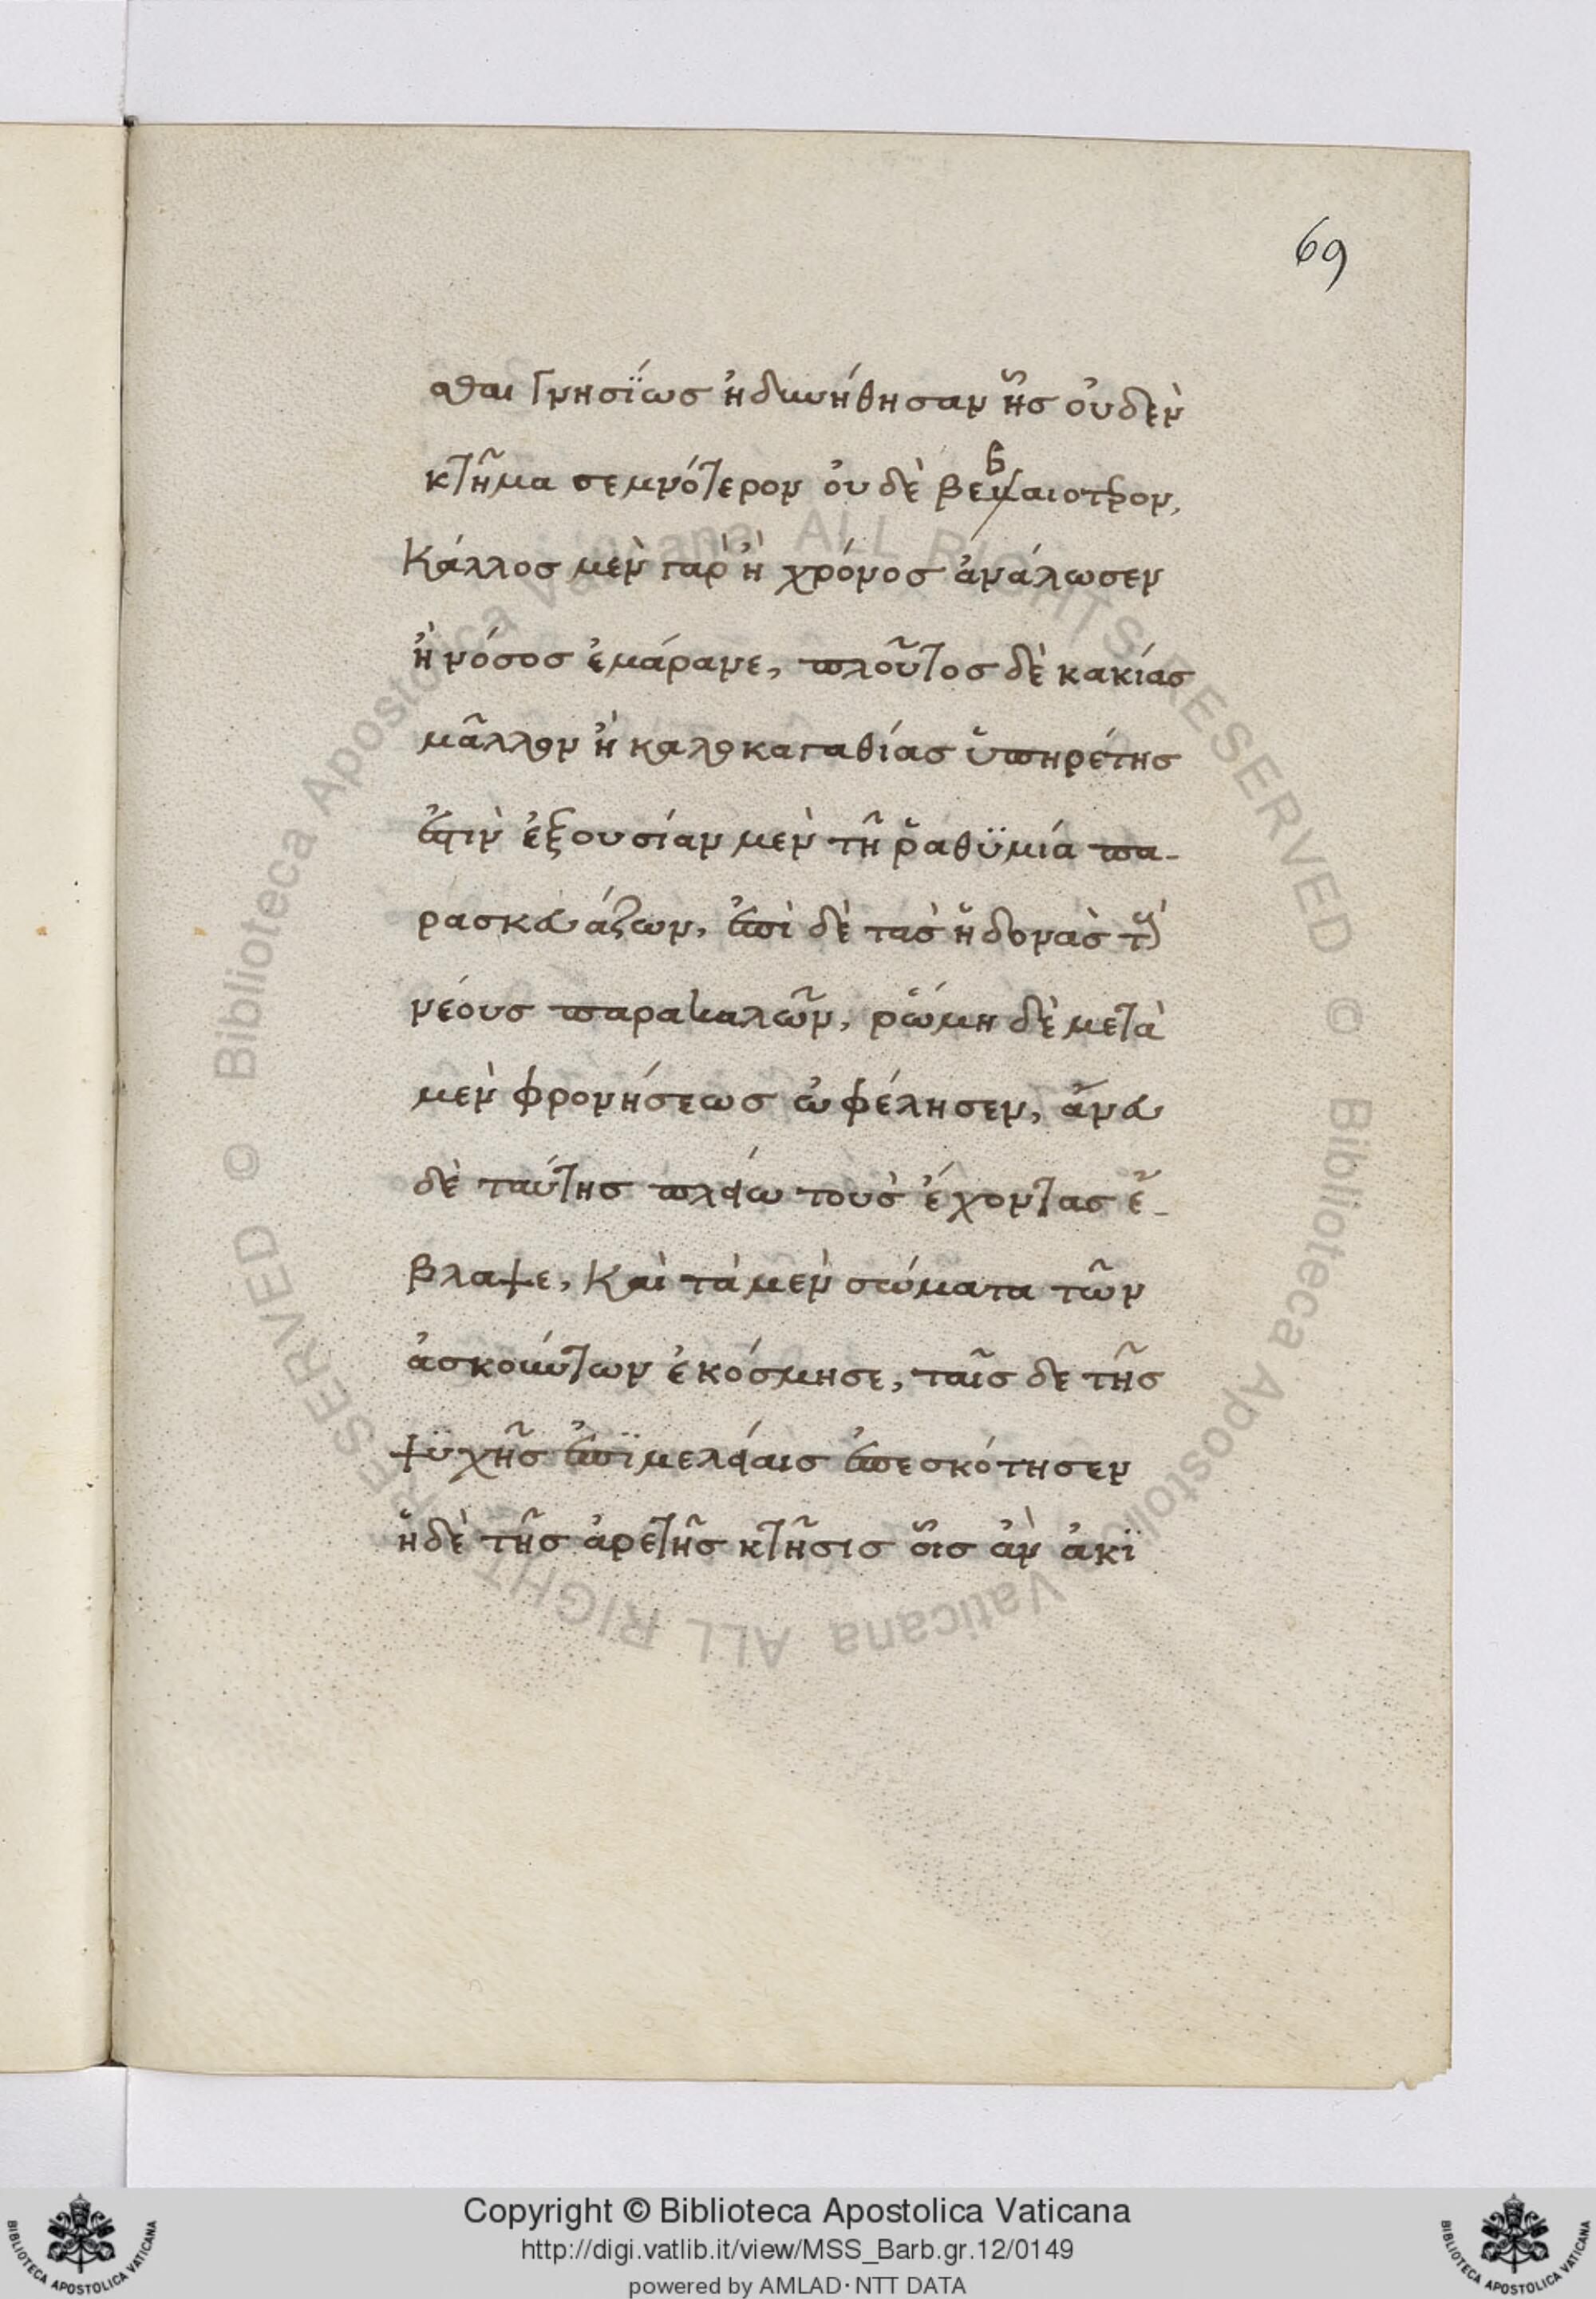 69
σθαι γνησΐως ἠδυνήθησαν ἧς οὐδὲν
κτῆμα σεμνότερον οὐδὲ βεβαιοτρον,
Κάλλος μὲν γὰρ ἢ χρόνος ἀνάλωσεν
ἢ νόσος ἐμάρανε, πλοῦτος δὲ κακίας
μᾶλλον ἢ καλοκαγαθίας ὑπηρέτης
ἐστὶν ἐξουσίαν μὲν τῆ ῥαθϋμία πα-
ρασκευάζων, ἐπὶ δὲ τὰς ἡδονὰς τοὺς
νέους παρακαλῶν, ῥώμη δὲ μετὰ
μὲν φρονήσεως ὠφέλησεν, ἄνευ
δὲ ταύτης πλείω τοὺς ἔχοντας ἔ-
βλαψε, Καὶ τὰ μὲν σώματα τῶν
ἀσκούντων ἐκόσμησε, ταῖς δε τῆς
ψϋχῆς ἐπϊμελείαις ἐπεσκότησεν
ἡ δὲ τῆς ἀρετῆς κτῆσις οἷς ἂν ἀκϊ
Copyright © Biblioteca Apostolica Vaticana
http://digi.vatlib.it/view/MSS_Barb.gr.12/0149
powered by AMLAD·NTT DATA
BIBLIOTECA APOSTOLICA VATICANA
BIBLIOTECA APOSTOLICA VATICANA
© Biblioteca Apostolica Vaticana ALL RIGHTS RESERVED © Biblioteca Apostolica Vaticana ALL RIGHTS RESERVED